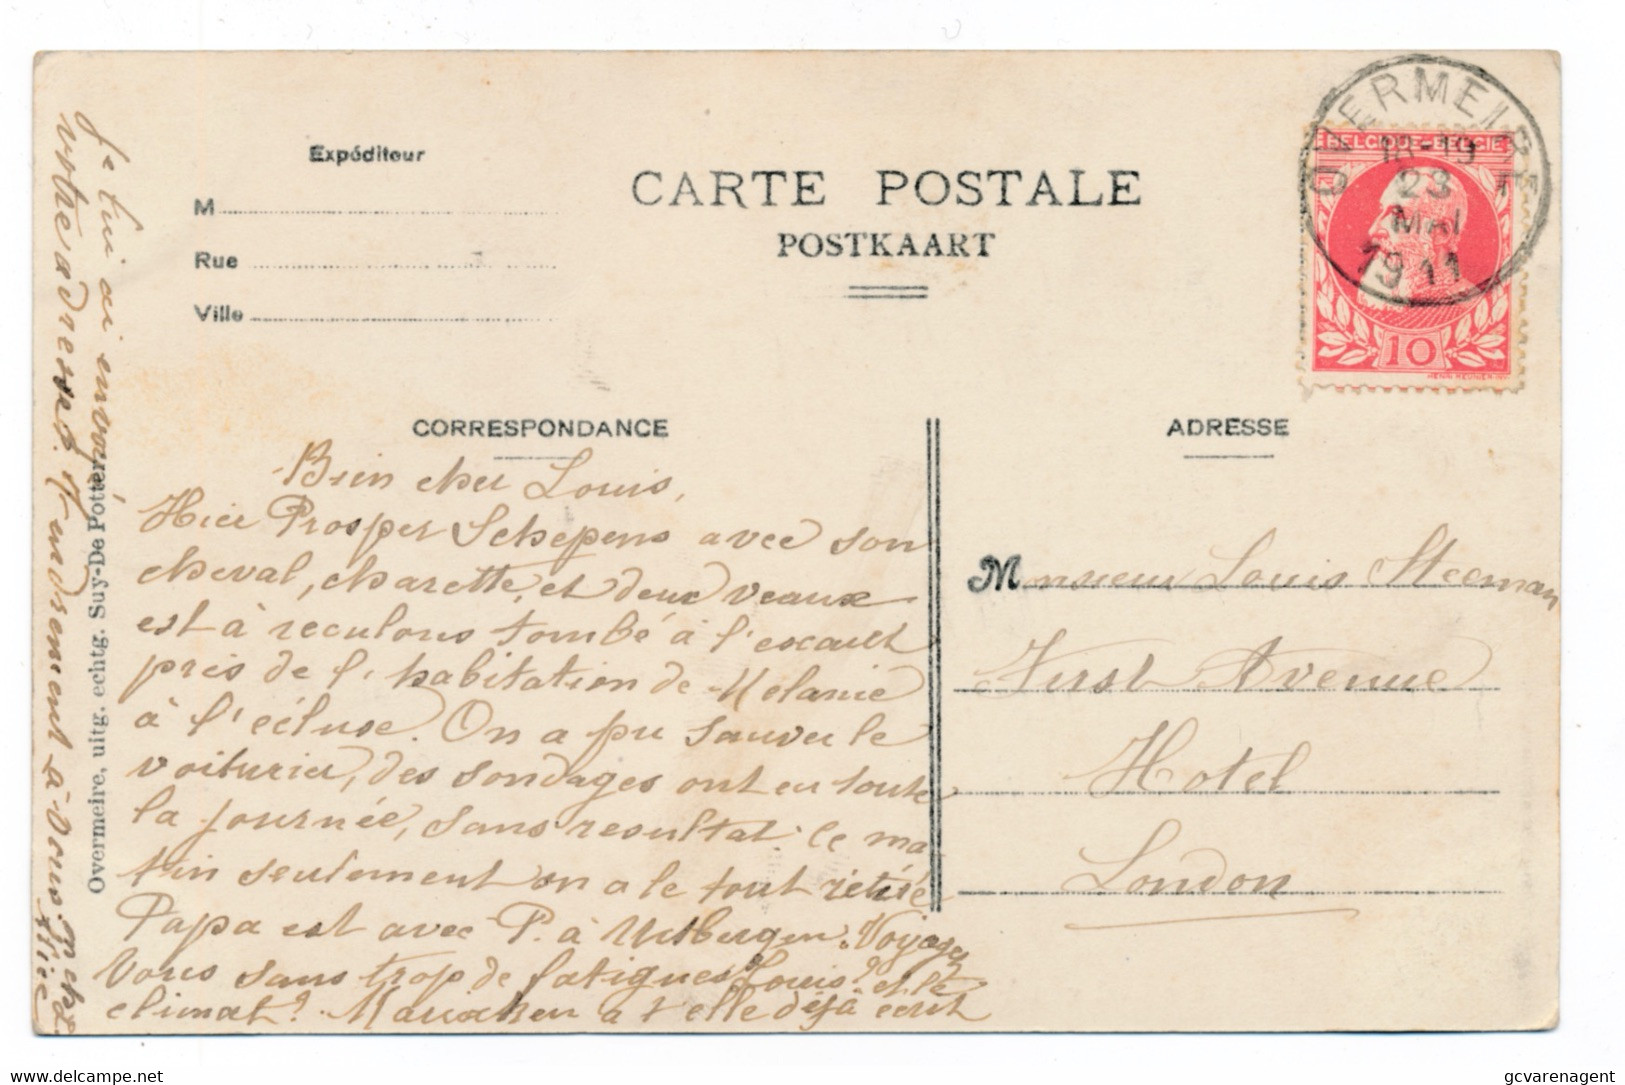 Expéditeur
M
Rue
Ville
CARTE POSTALE
POSTKAART
OVERMEIRE
18-19
23
MAI
1911
BELGIQUE-BELGIË
10
CORRESPONDANCE
ADRESSE
Bien cher Louis,
Hier Prosper Schepens avec son
cheval, charette, et deux veaux
est à reculons tombé à l'escaut
près de l'habitation de Melanie
à l'écluse. On a pu sauver le
voiturier, des sondages ont eu toute
la journée, sans resultat. Ce ma
tin seulement on a le tout retiré
Papa est avec P. à Uitbergen. Voyagez
Vous sans trop de fatigues Louis? et le
climat? Marieken a t'elle déjà écrit
Je lui ai envoyé
votre adresse. Tendrement à vous.
Alice
Monsieur Louis Steeman
First Avenue
Hotel
London
Overmeire, uitg. echtg. Suy-De Potter.
gcvarenagent